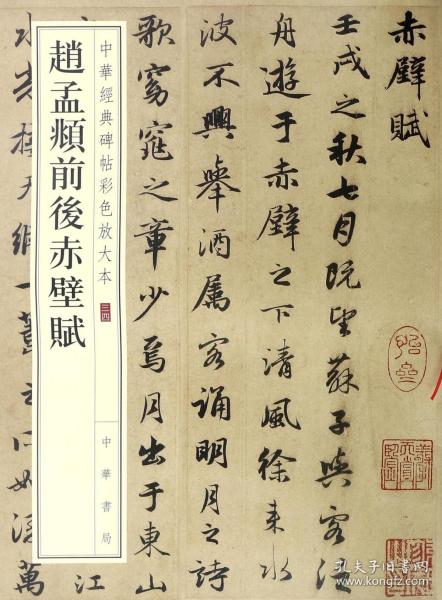 赤壁賦
壬戌之秋七月既望蘇子與客泛
舟遊于赤壁之下清風徐来水
波不興舉酒属客誦明月之詩
歌窈窕之章少焉月出于東山
江
水光接天縱一葦之所如淩萬
中華經典碑帖彩色放大本 三四
中華書局
趙孟頫前後赤壁賦
孔夫子旧书网